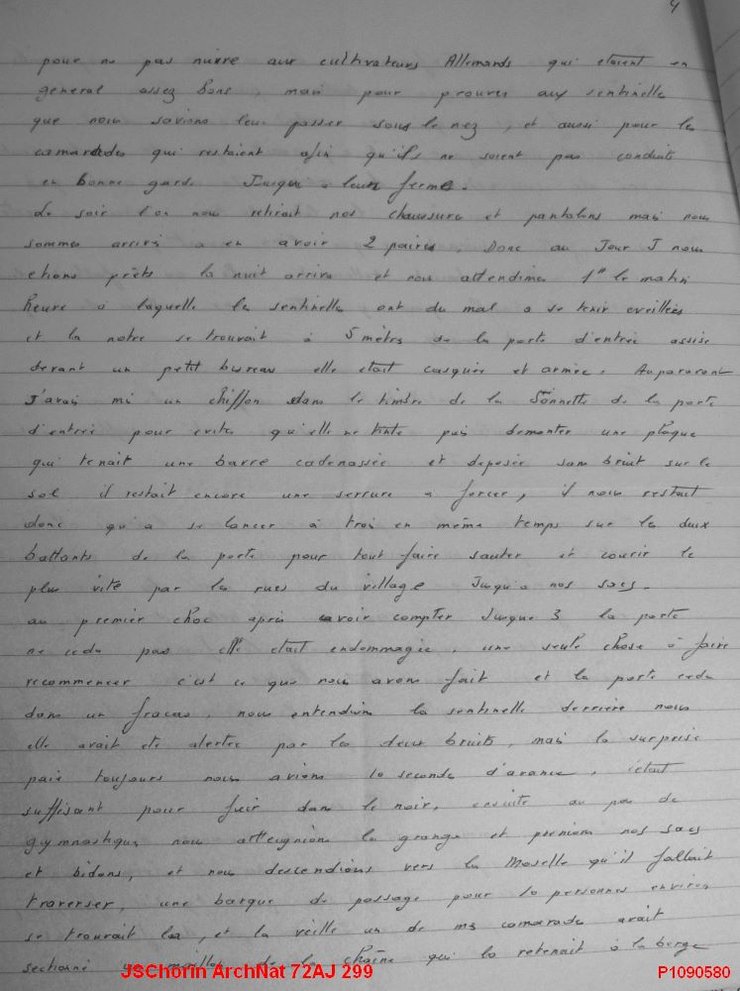 4
pour ne pas nuire aux cultivateurs Allemands qui etaient en
general assez bons, mais pour prouver aux sentinelle
que nous savions leur passer sous le nez, et aussi pour les
camarades qui restaient afin qu'ils ne soient pas conduits
en bonne garde Jusqu'a leurs ferme.
Le soir l'on nous retirait nos chaussure et pantalons mais nous
sommes arrivé a en avoir 2 paires. Donc au Jour J nous
etions prêts la nuit arriva et nous attendimes 1H le matin
heure a laquelle les sentinelles ont du mal a se tenir eveillées
et la notre se trouvait à 5 mètres de la porte d'entrée assise
devant un petit bureau elle etait casquée et armée. Auparavant
J'avais mi un chiffon dans le timbre de la sonnette de la porte
d'entrée pour eviter qu'elle ne tinte puis demonter une plaque
qui tenait une barre cadenassée et deposée sans bruit sur le
sol il restait encore une serrure a forcer, il nous restait
donc qu'a se lancer à trois en même temps sur les deux
battants de la porte pour tout faire sauter et courir le
plus vite par les rues du village Jusqu'a nos sacs.
au premier choc après avoir compter Jusque 3 la porte
ne ceda pas elle etait endommagée, une seule chose à faire
recommencer c'est ce que nous avons fait et la porte ceda
dans un fracas, nous entendions la sentinelle derrière nous
elle avait ete alertée par les deux bruits, mais la surprise
paie toujours nous avions 10 seconde d'avance, c'etait
suffisant pour fuir dans le noir, ensuite au pas de
gymnastique nous atteignions la grange et prenions nos sacs
et bidons, et nous descendions vers la Moselle qu'il fallait
traverser, une barque de passage pour 10 personnes environ
se trouvait la, et la veille un de mes camarades avait
sectionné un maillon de la chaîne qui la retenait à la berge
JSChorin ArchNat 72AJ 299
P1090580